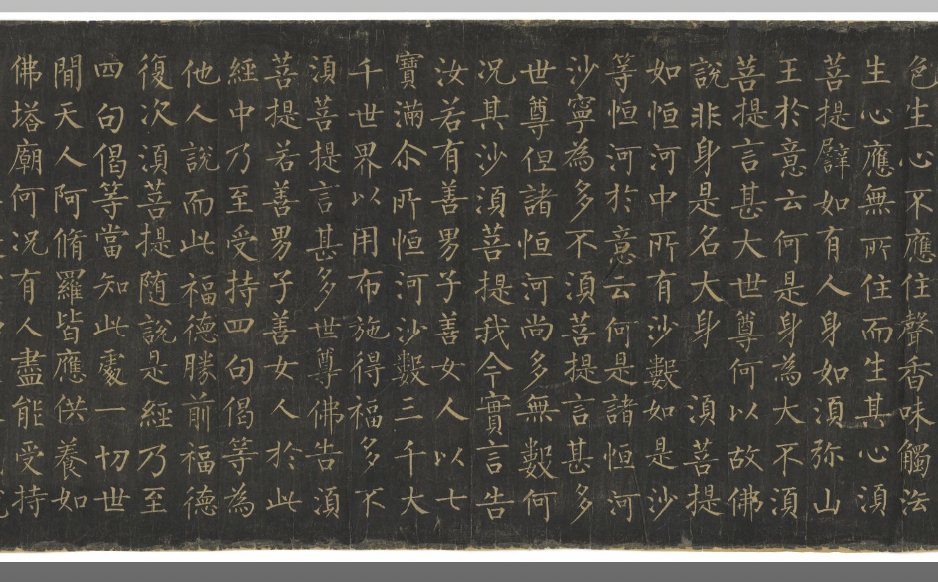 色生心不應住聲香味觸法
生心應無所住而生其心須
菩提譬如有人身如須弥山
王於意云何是身為大不須
菩提言甚大世尊何以故佛
說非身是名大身須菩提
如恒河中所有沙數如是沙
等恒河於意云何是諸恒河
沙寧為多不須菩提言甚多
世尊但諸恒河尚多無數何
况其沙須菩提我今實言告
汝若有善男子善女人以七
寶滿尒所恒河沙數三千大
千世界以用布施得福多不
須菩提言甚多世尊佛告須
菩提若善男子善女人於此
經中乃至受持四句偈等為
他人說而此福德勝前福德
復次須菩提随說是經乃至
四句偈等當知此處一切世
間天人阿脩羅皆應供養如
佛塔廟何况有人盡能受持